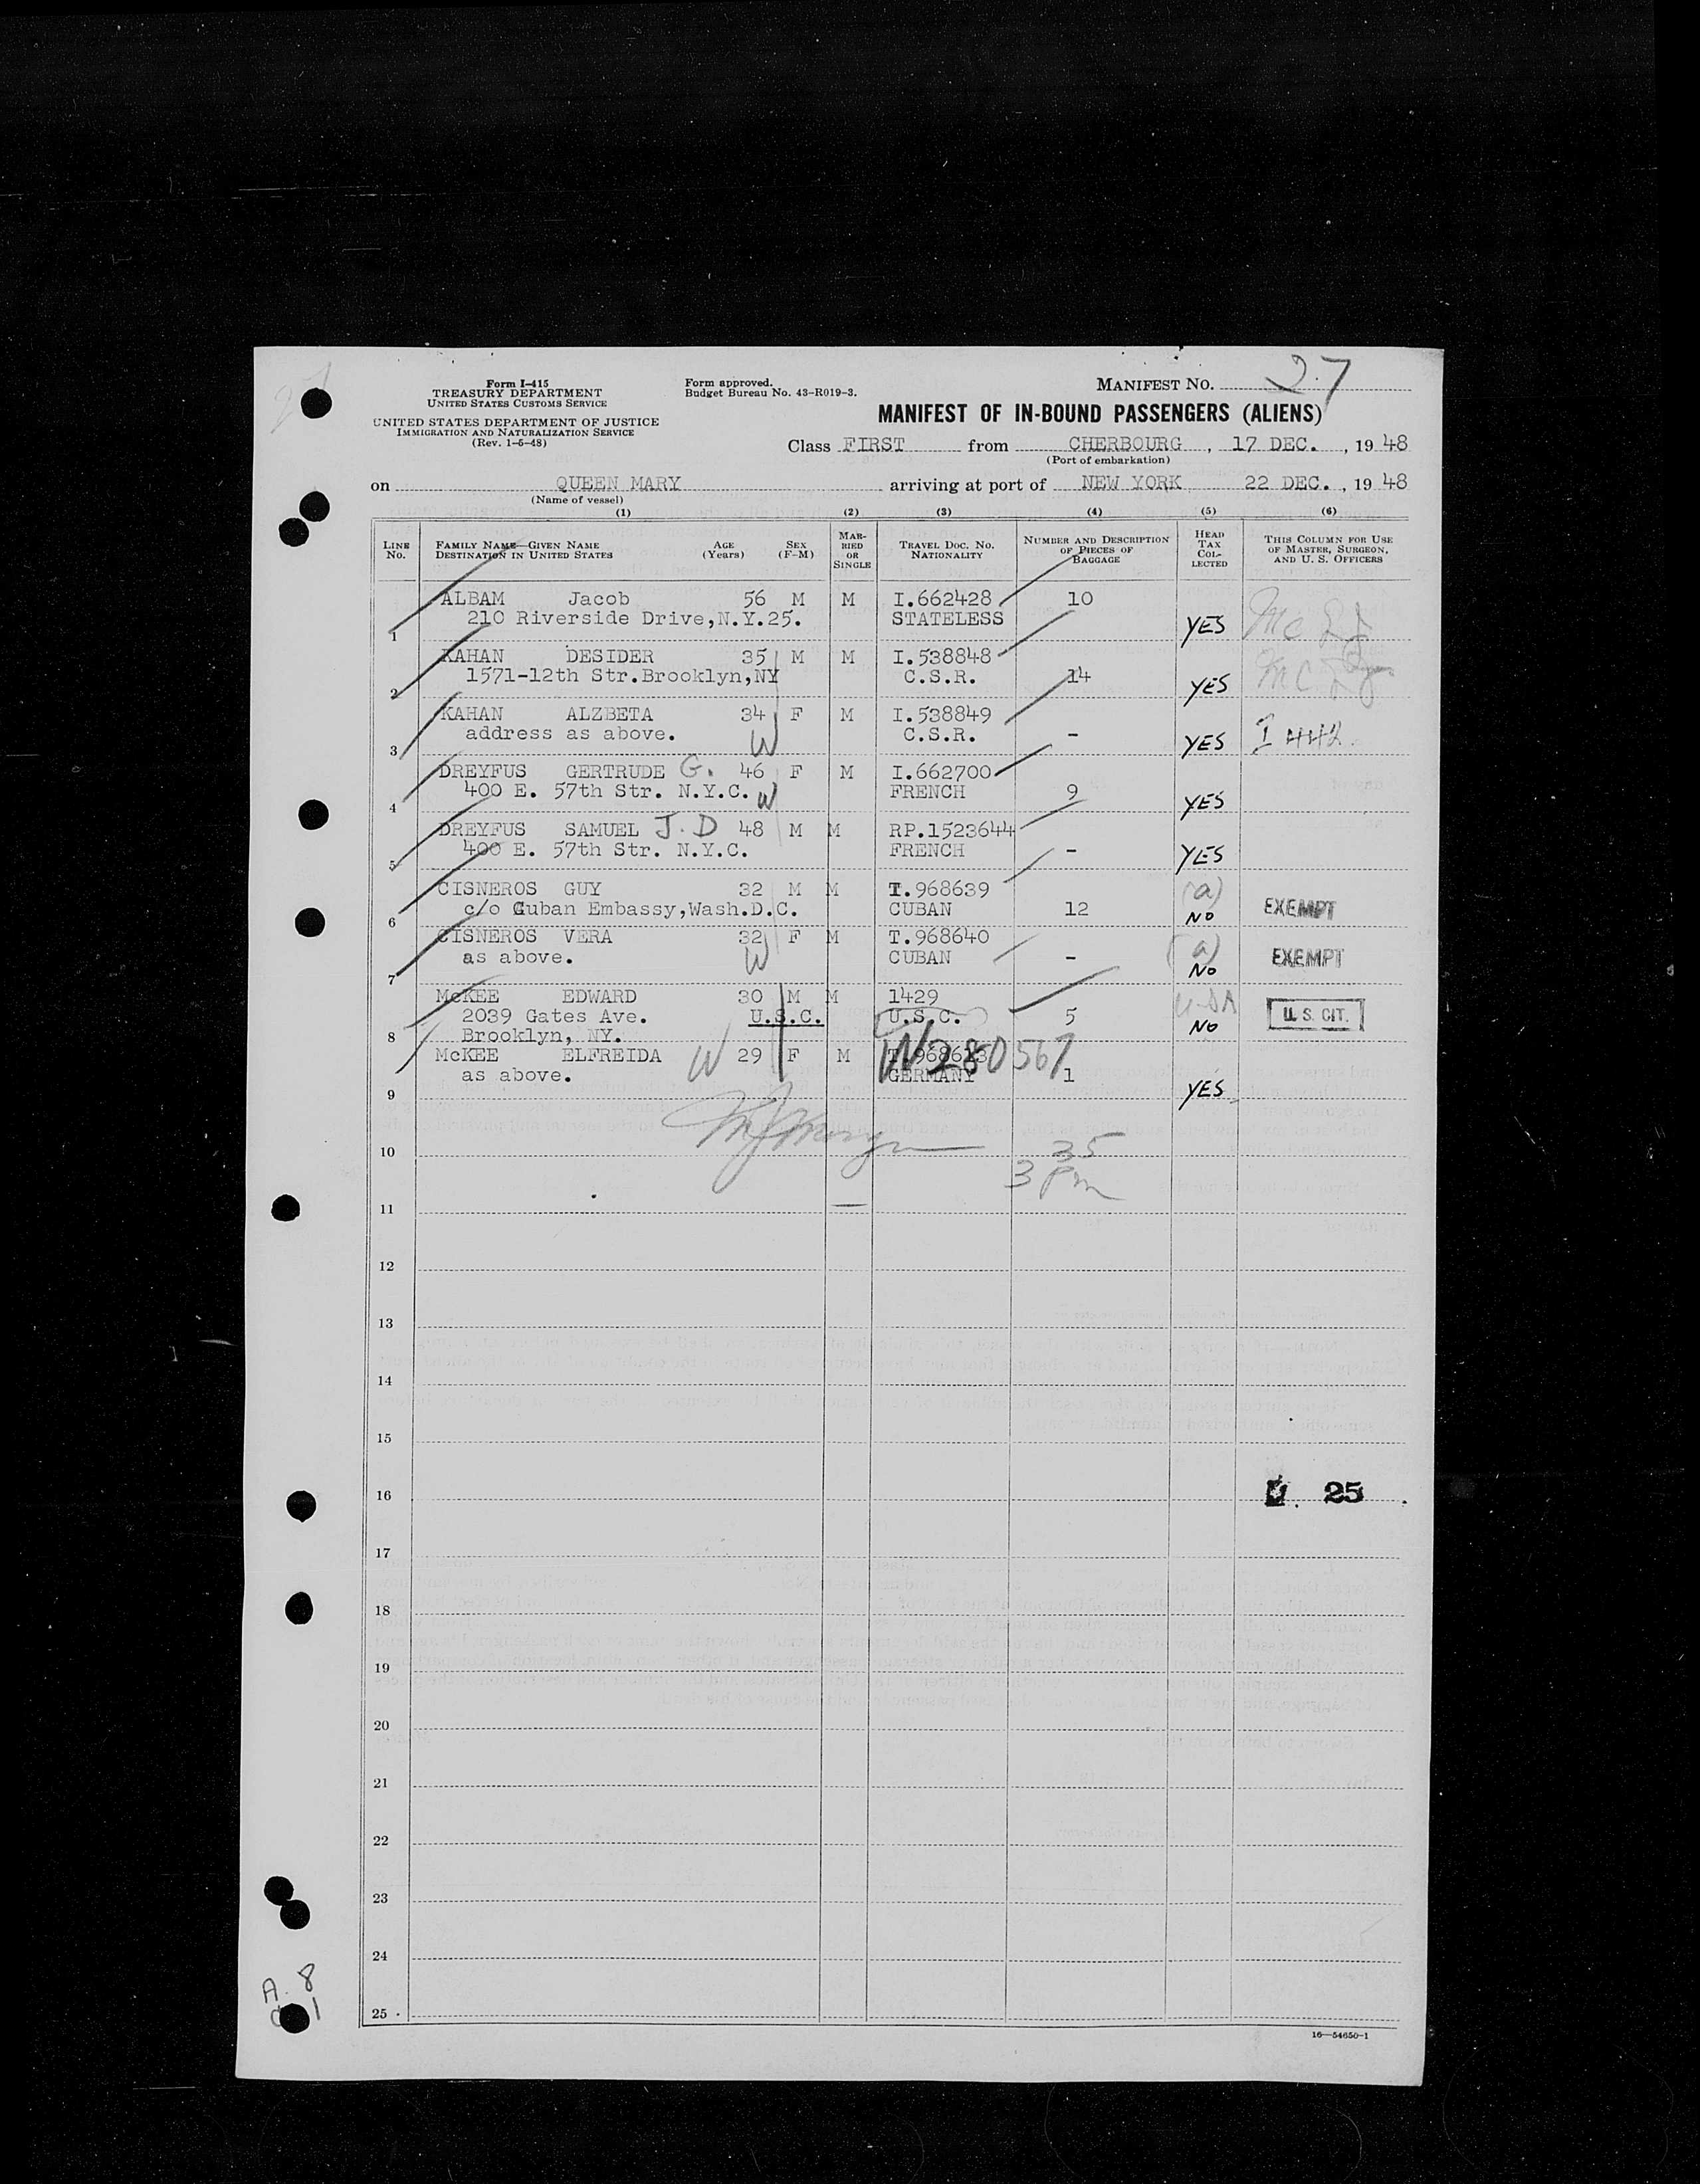 Form I-415
TREASURY DEPARTMENT
UNITED STATES CUSTOMS SERVICE
UNITED STATES DEPARTMENT OF JUSTICE
IMMIGRATION AND NATURALIZATION SERVICE
(Rev. 1-5-48)
Form approved.
Budget Bureau No. 43-R019-3.
MANIFEST NO. 27
MANIFEST OF IN-BOUND PASSENGERS (ALIENS)
Class FIRST from CHERBOURG, 17 DEC., 1948
(Port of embarkation)
on QUEEN MARY arriving at port of NEW YORK 22 DEC., 1948
(Name of vessel)
(1) (2) (3) (4) (5) (6)
LINE NO. FAMILY NAME—GIVEN NAME DESTINATION IN UNITED STATES AGE (Years) SEX (F-M) MARRIED OR SINGLE TRAVEL DOC. NO. NATIONALITY NUMBER AND DESCRIPTION OF PIECES OF BAGGAGE HEAD TAX COLLECTED THIS COLUMN FOR USE OF MASTER, SURGEON, AND U. S. OFFICERS
ALBAM Jacob 56 M M I.662428 10
210 Riverside Drive,N.Y.25. STATELESS
1 YES
KAHAN DESIDER 35 M M I.538848
1571-12th Str.Brooklyn,NY C.S.R. 14
2 YES
KAHAN ALZBETA 34 F M I.538849
address as above. W C.S.R. -
3 YES I 442
DREYFUS GERTRUDE G. 46 F M I.662700
400 E. 57th Str. N.Y.C. W FRENCH 9
4 YES
DREYFUS SAMUEL J.D 48 M M RP.1523644
400 E. 57th Str. N.Y.C. FRENCH -
5 YES
CISNEROS GUY 32 M M T.968639 (a)
c/o Cuban Embassy,Wash.D.C. CUBAN 12 EXEMPT
6 NO
CISNEROS VERA 32 F M T.968640 (a)
as above. W CUBAN - EXEMPT
7 NO
McKEE EDWARD 30 M M 1429 USA
2039 Gates Ave. U.S.C. U.S.C. 5 U. S. CIT.
8 Brooklyn, NY. NO
McKEE ELFREIDA W 29 F M W280567
as above. GERMANY 1
9 YES
10 3 35 Pm
11
12
13
14
15
16 25
17
18
19
20
21
22
23
24
A. 8
1
25
16—54650-1